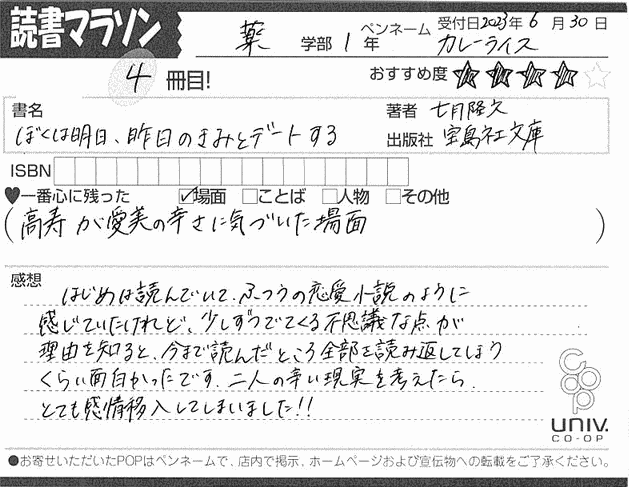 読書マラソン
薬 学部 1 年 ペンネーム カレーライス 受付日2023年6月30日
4 冊目! おすすめ度 ★★★★☆
書名 著者 七月隆文
ぼくは明日、昨日のきみとデートする 出版社 宝島社文庫
ISBN
♥一番心に残った ☑場面 □ことば □人物 □その他
(高寿が愛美の辛さに気づいた場面)
感想 はじめは読んでいて、ふつうの恋愛小説のように
感じていたけれど、少しずつでてくる不思議な点が
理由を知ると、今まで読んだところ全部を読み返してしまう
くらい面白かったです。二人の辛い現実を考えたら、
とても感情移入してしまいました!!
coop
UNIV.
CO-OP
●お寄せいただいたPOPはペンネームで、店内で掲示、ホームページおよび宣伝物への転載をご了承ください。